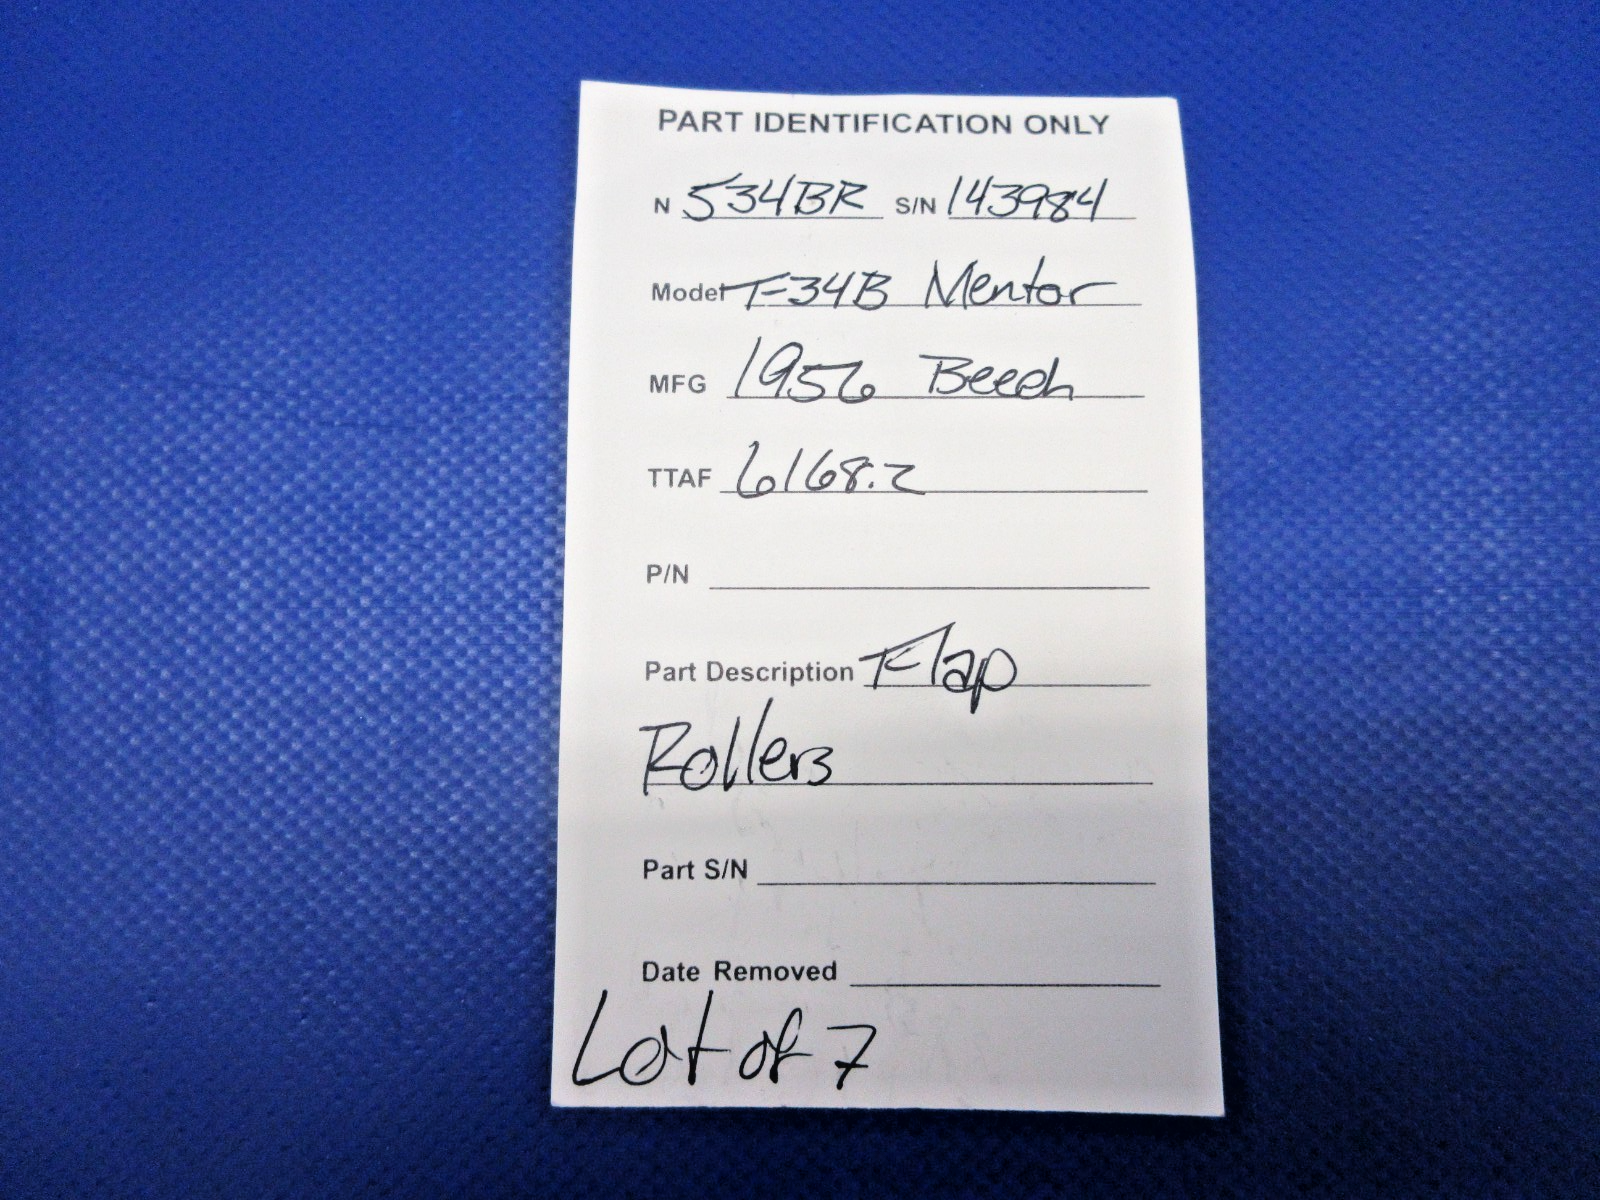 PART IDENTIFICATION ONLY
N 534BR S/N 143984
Model T-34B Mentor
MFG 1956 Beech
TTAF 6168.2
P/N
Part Description Flap
Rollers
Part S/N
Date Removed
Lot of 7